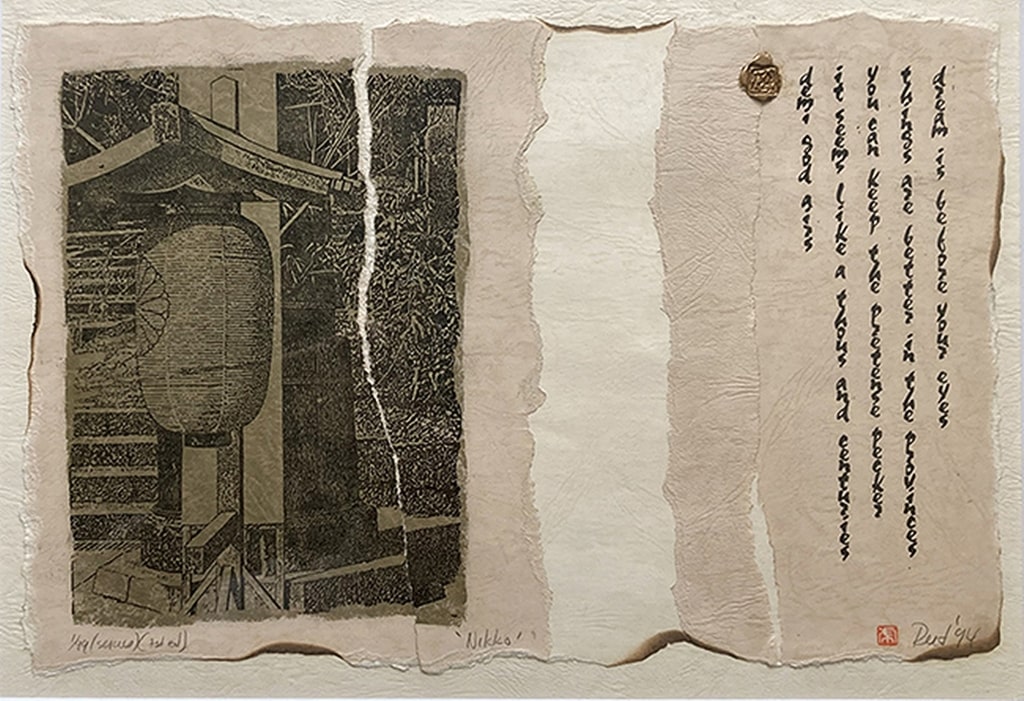 dream is before your eyes
things are better in the provinces
you can keep the pretense pecker
it seems like a thous and centuries
demi god
'Nikko'
'94